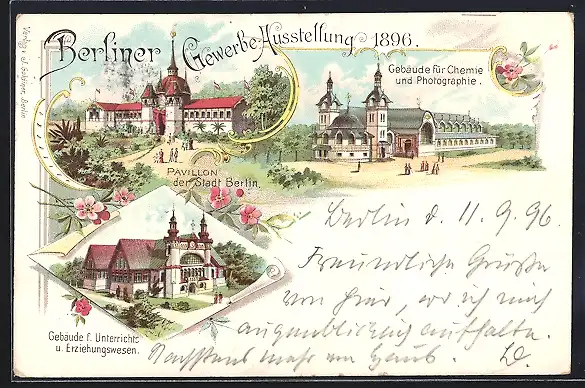 Berliner Gewerbe-Ausstellung 1896.
Gebäude für Chemie
und Photographie.
PAVILLON
der STADT BERLIN.
Gebäude f. Unterrichts
u. Erziehungswesen.
Berlin d. 11.9.96
Freundliche Grüße
von hier, wo ich mich
augenblicklich aufhalte.
Nächstens mehr von Haus.